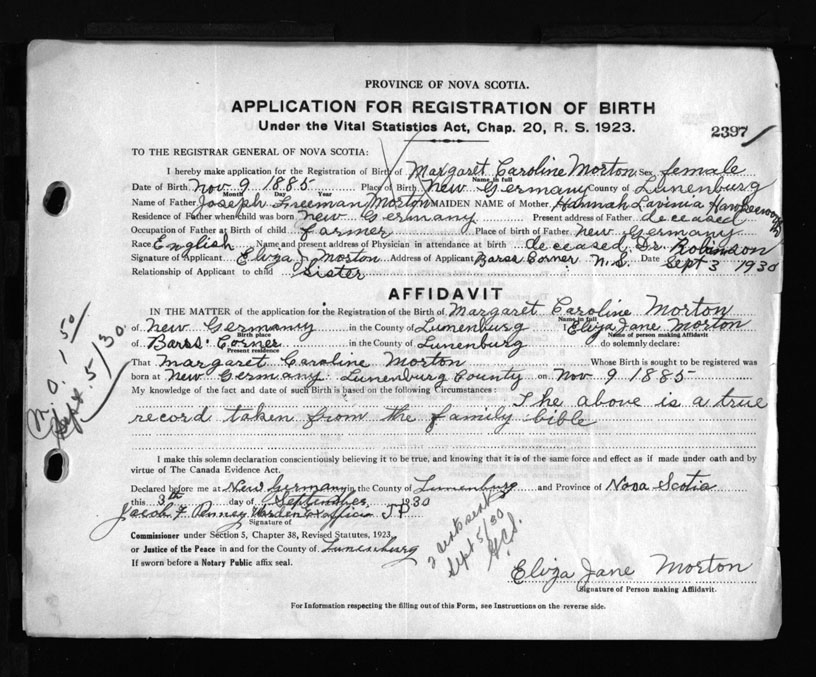 PROVINCE OF NOVA SCOTIA.
APPLICATION FOR REGISTRATION OF BIRTH
Under the Vital Statistics Act, Chap. 20, R. S. 1923.
2397
TO THE REGISTRAR GENERAL OF NOVA SCOTIA:
I hereby make application for the Registration of Birth of Margaret Caroline Morton Sex female
Name in full
Date of Birth Nov 9 1885 Place of Birth New Germany County of Lunenburg
Month Day Year
Name of Father Joseph Freeman Morton MAIDEN NAME of Mother Hannah Lavinia
Residence of Father when child was born New Germany Present address of Father deceased
Occupation of Father at Birth of child farmer Place of birth of Father New Germany
Race English Name and present address of Physician in attendance at birth deceased Dr. Robinson
Signature of Applicant Eliza J. Morton Address of Applicant Barss Corner N. S. Date Sept 3 1930
Relationship of Applicant to child Sister
AFFIDAVIT
IN THE MATTER of the application for the Registration of the Birth of Margaret Caroline Morton
Name in full
of New Germany in the County of Lunenburg I Eliza Jane Morton
Birth place Name of person making Affidavit
of Barss Corner in the County of Lunenburg do solemnly declare:
Present residence
That Margaret Caroline Morton Whose Birth is sought to be registered was
born at New Germany Lunenburg County on Nov 9 1885
My knowledge of the fact and date of such Birth is based on the following Circumstances:
The above is a true
record taken from the family bible
M.O. 1.50
Sept. 5/30.
I make this solemn declaration conscientiously believing it to be true, and knowing that it is of the same force and effect as if made under oath and by
virtue of The Canada Evidence Act.
Declared before me at New Germany in the County of Lunenburg and Province of Nova Scotia
this 3th day of September 1930
Jacob F Penney Warden Exofficio J P
Signature of
Commissioner under Section 5, Chapter 38, Revised Statutes, 1923,
or Justice of the Peace in and for the County of Lunenburg
If sworn before a Notary Public affix seal.
sent
Sept 5/30
Eliza Jane Morton
Signature of Person making Affidavit.
For Information respecting the filling out of this Form, see Instructions on the reverse side.